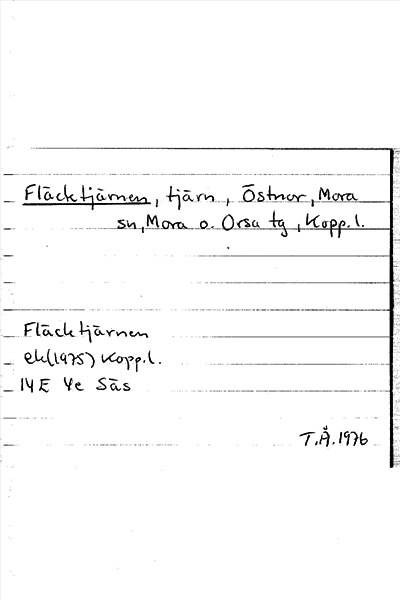 Fläcktjärnen, tjärn, Östnor, Mora
sn, Mora o. Orsa tg, Kopp. l.
Fläcktjärnen
ek(1975) Kopp. l.
14E 4e Säs
T.Å. 1976